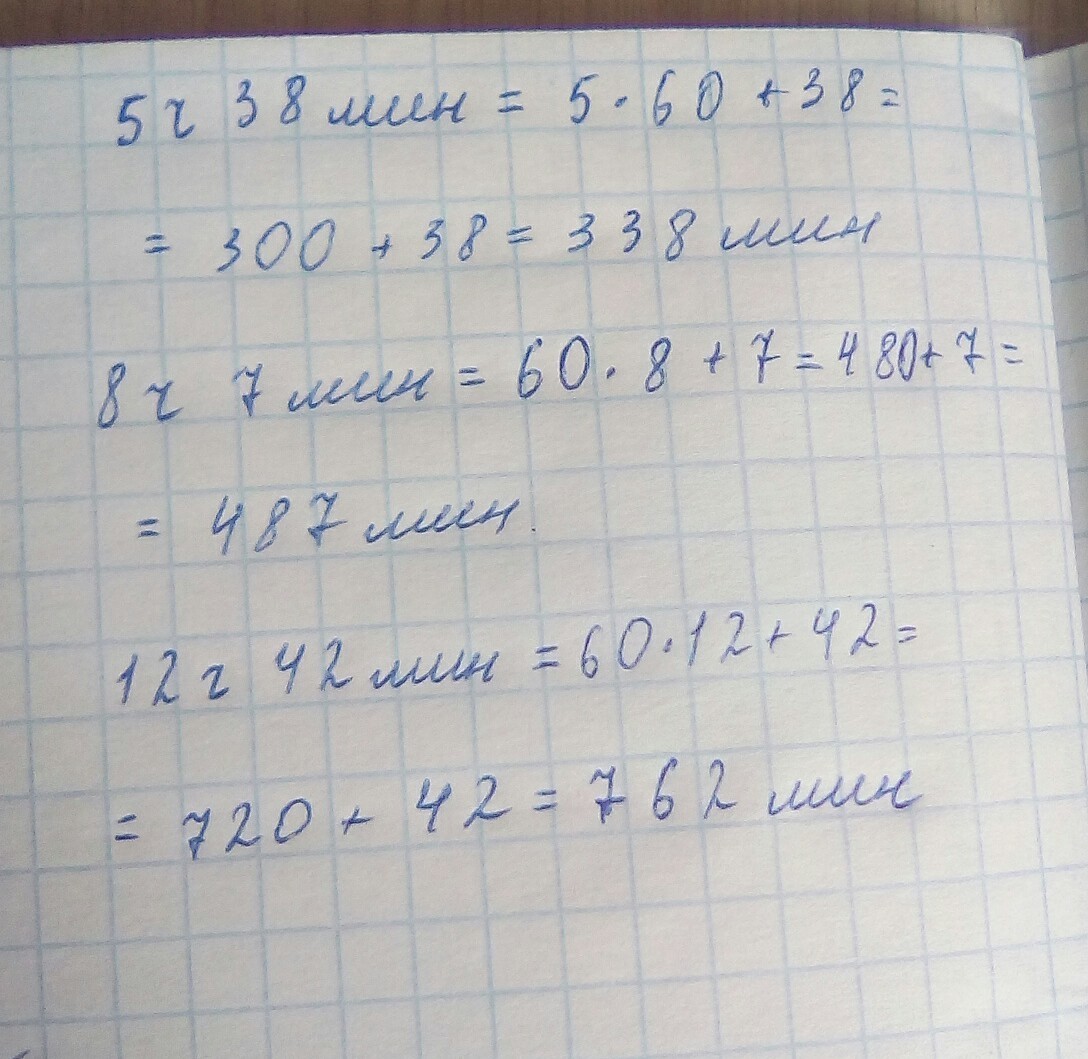 5 ч 38 мин = 5 · 60 + 38 =
= 300 + 38 = 338 мин
8 ч 7 мин = 60 · 8 + 7 = 480 + 7 =
= 487 мин.
12 ч 42 мин = 60 · 12 + 42 =
= 720 + 42 = 762 мин